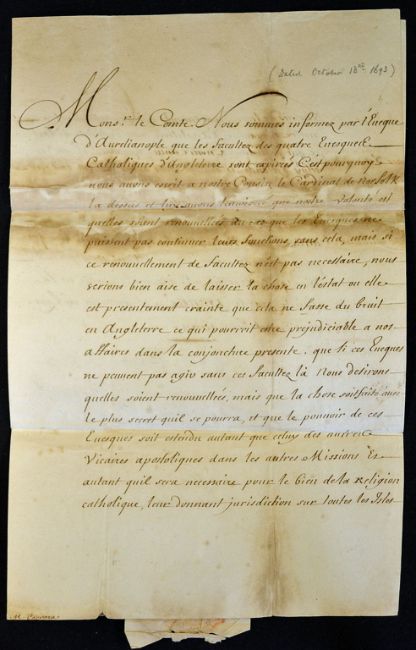 (Dated October 18th 1693)
Monsr. le Comte. Nous sommes informez par l'Eueque
d'Aurelianople que les facultez des quatre Euesques
Catholiques d'Angleterre sont expirées C'est pourquoy
nous auons escrit a nostre Cousin le Cardinal de Norfolk
la dessus et luy auons tesmoigné que nostre volonté est
quelles soient renouvellées en cas que les Euesques ne
puissent pas continuer leurs fonctions sans cela, mais si
ce renouuellement de facultez n'est pas necessaire, nous
serions bien aise de laisser la chose en l'estat ou elle
est presentement crainte que cela ne fasse du bruit
en Angleterre ce qui pourroit estre prejudiciable a nos
affaires dans la conjoncture presente. que si ces Eueques
ne peuuent pas agir sans ces facultez là Nous desirons
quelles soient renouuellées, mais que la chose soit faite auec
le plus secret quil se pourra, et que le pouuoir de ces
Euesques soit estendu autant que celuy des autres
Vicaires apostoliques dans les autres Missions Et
autant quil sera necessaire pour le bien de la Religion
catholique, leur donnant jurisdiction sur toutes les Isles